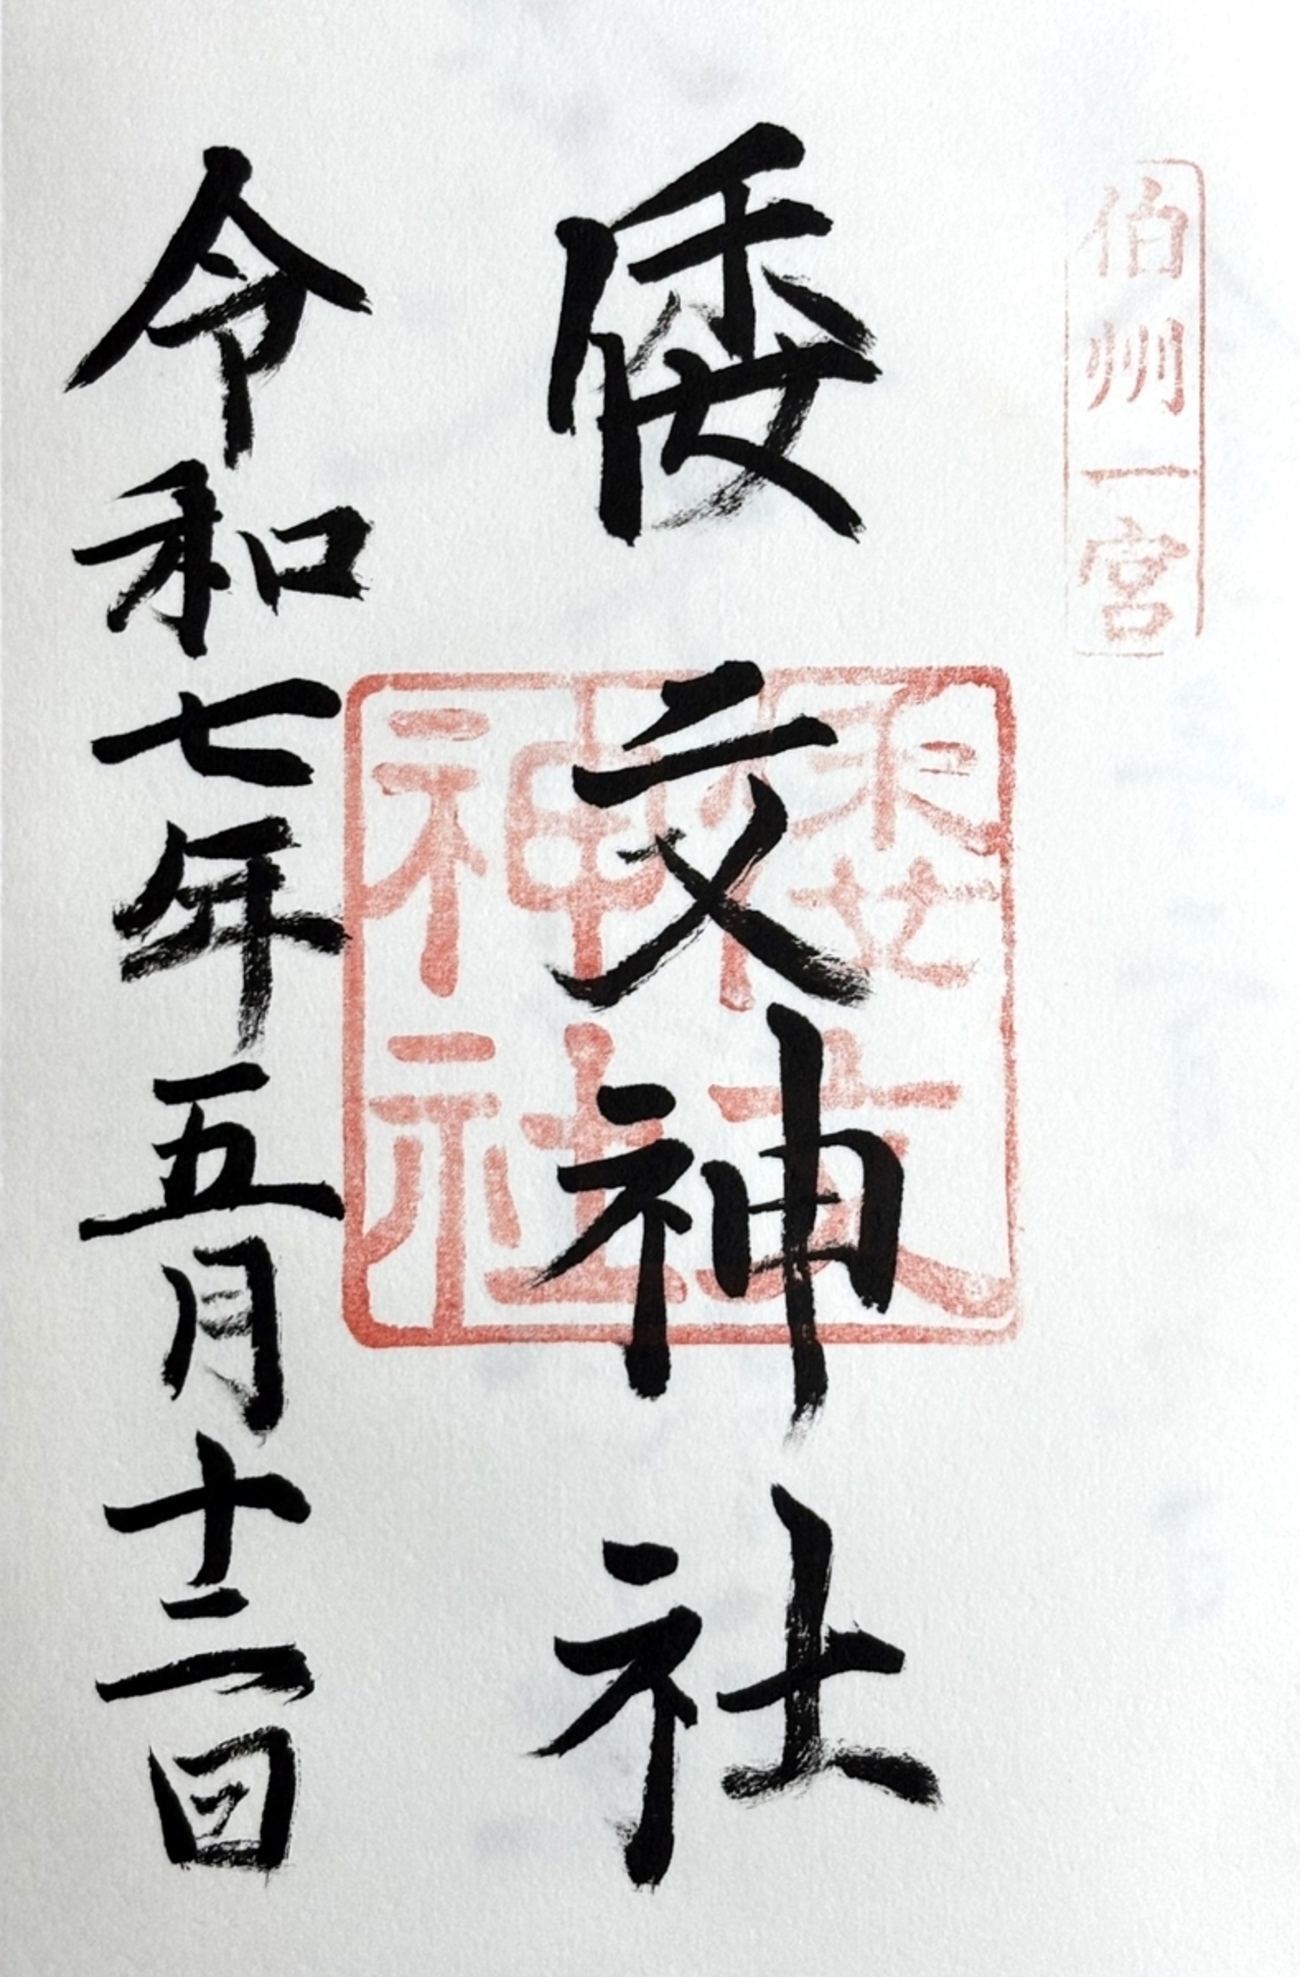 伯州一宮
倭文神社
倭文神社
令和七年五月十二日